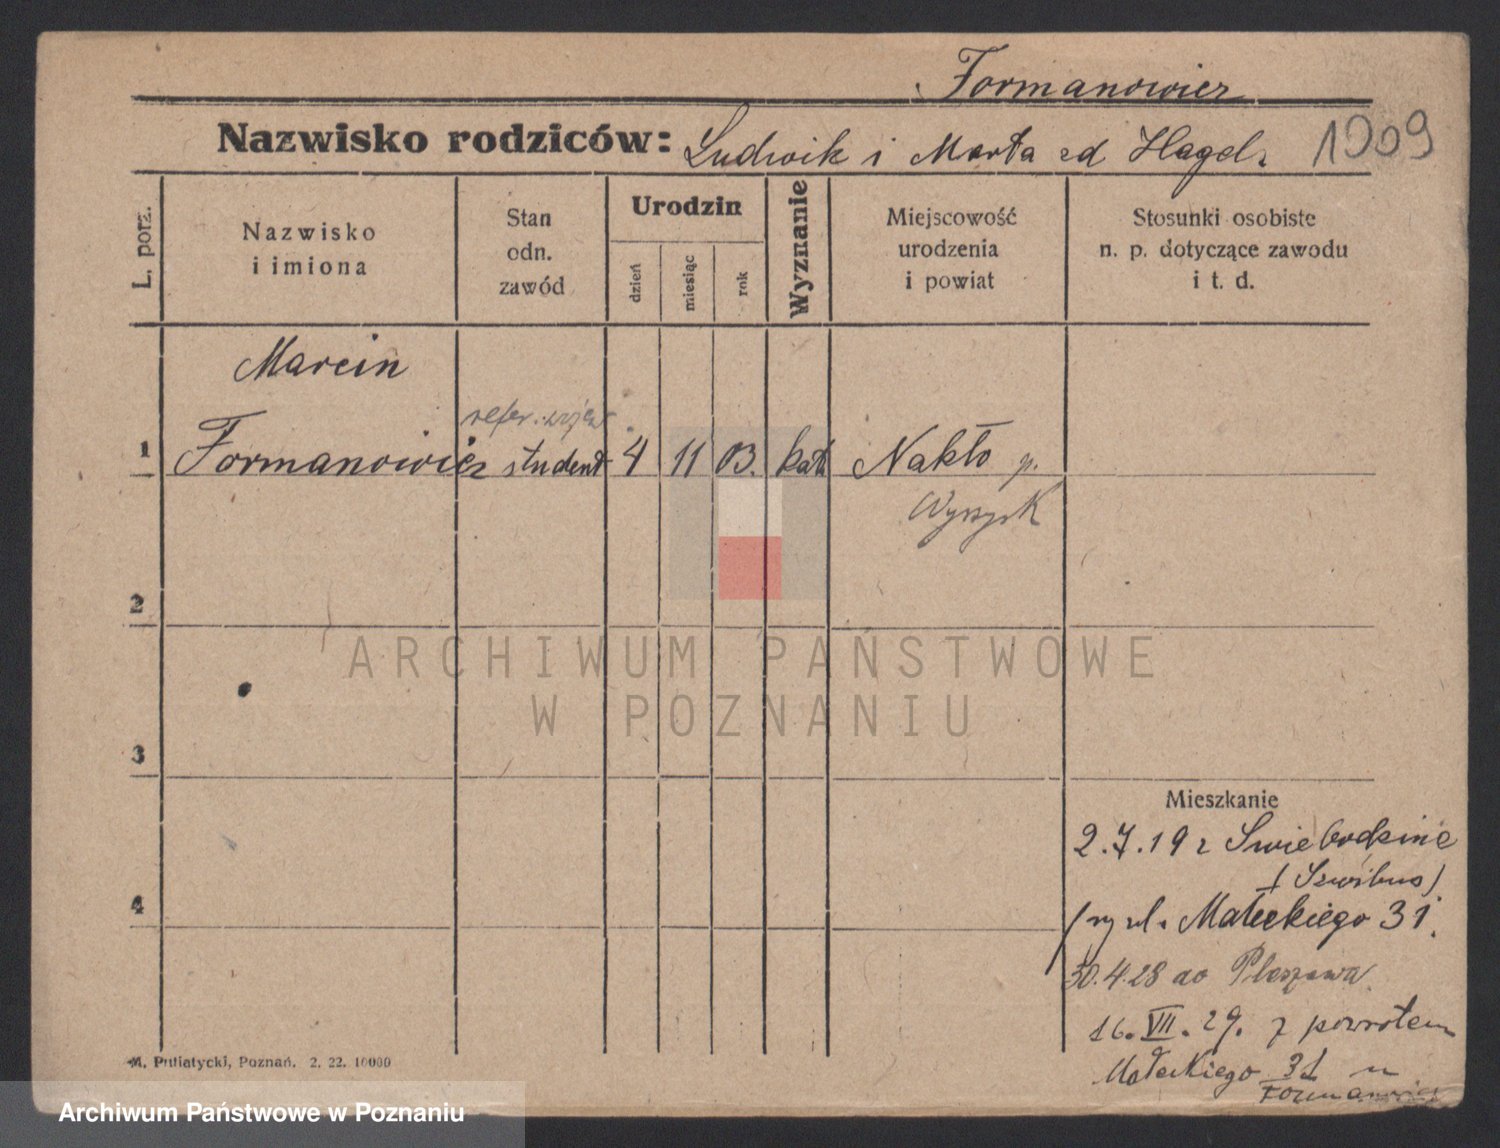 Formanowicz
Nazwisko rodziców: Ludwik i Marta zd Hagel. 1909
L. porz.
Nazwisko
i imiona
Stan
odn.
zawód
Urodzin
dzień
miesiąc
rok
Wyznanie
Miejscowość
urodzenia
i powiat
Stosunki osobiste
n. p. dotyczące zawodu
i t. d.
Marcin
refer.
1 Formanowicz student 4 11 03. kat Nakło p.
Wyrzysk
2
ARCHIWUM PAŃSTWOWE
W POZNANIU
3
Mieszkanie
2.7.19 z Swiebodzine
(Szwibus)
4
przy ul. Małeckiego 31.
30.4.28 do Pleszewa
16.VII.29. z powrotem
Małeckiego 31 u
Formanowicz
M. Putiatycki, Poznań. 2. 22. 10000
Archiwum Państwowe w Poznaniu